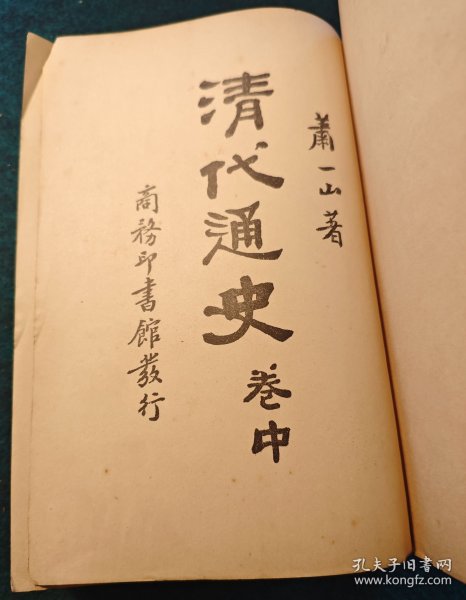 蕭一山著
清代通史
卷中
商務印書館發行
孔夫子旧书网
www.kongfz.com